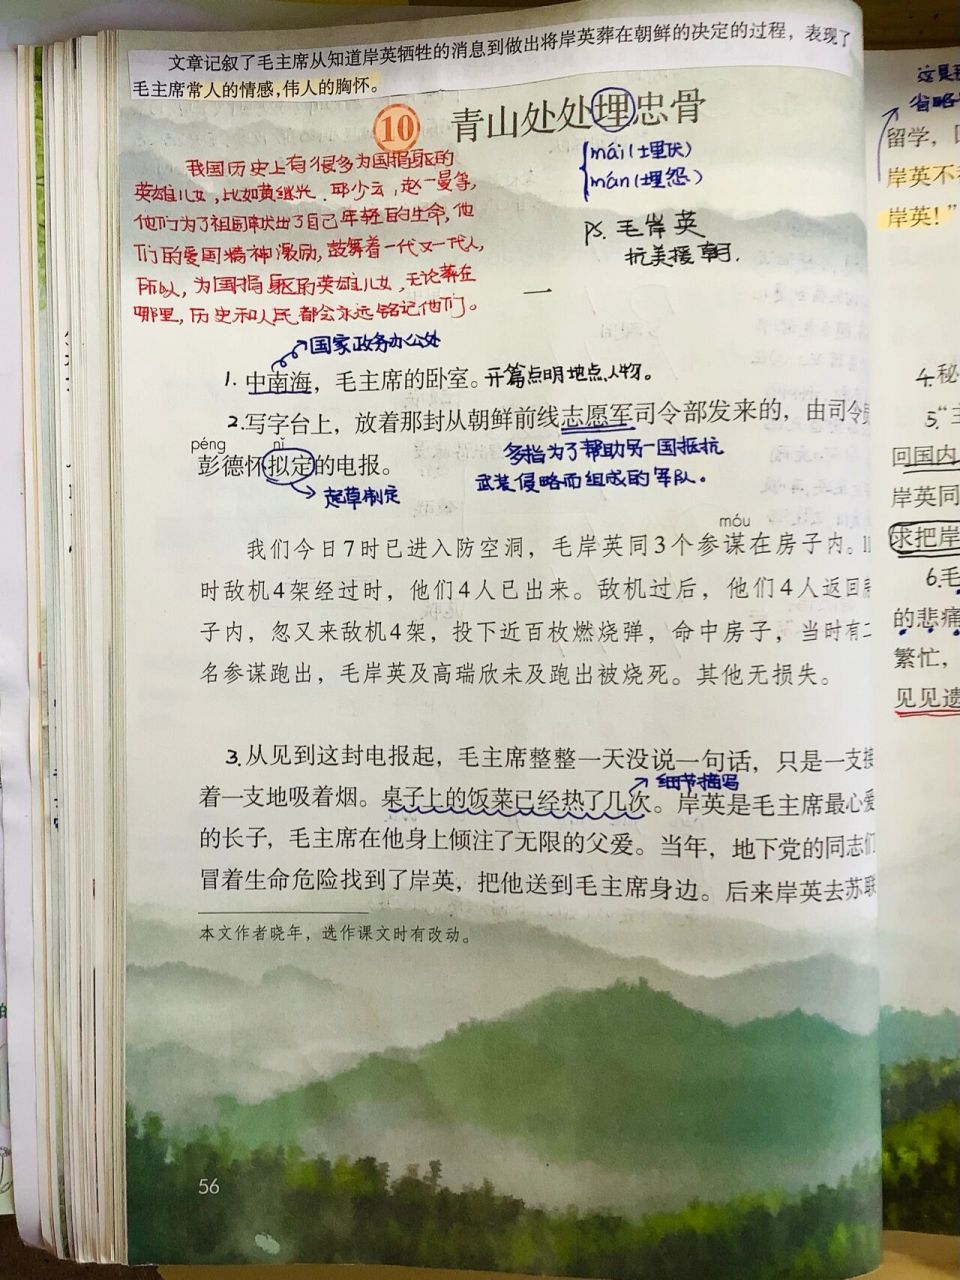 文章记叙了毛主席从知道岸英牺牲的消息到做出将岸英葬在朝鲜的决定的过程，表现了
毛主席常人的情感,伟人的胸怀。
10 青山处处埋忠骨
mái(埋伏)
mán(埋怨)
我国历史上有很多为国捐躯的
英雄儿女,比如黄继光、邱少云,赵一曼等,
他们为了祖国献出了自己年轻的生命,他
们的爱国精神激励,鼓舞着一代又一代人,
所以,为国捐躯的英雄儿女,无论葬在
哪里,历史和人民都会永远铭记他们。
PS. 毛岸英
抗美援朝.
一
国家政务办公处
1. 中南海，毛主席的卧室。开篇点明地点、人物。
2. 写字台上，放着那封从朝鲜前线志愿军司令部发来的，由司令
péng nǐ
彭德怀拟定的电报。
多指为了帮助另一国抵抗
武装侵略而组成的军队。
起草制定
móu
我们今日7时已进入防空洞，毛岸英同3个参谋在房子内。11
时敌机4架经过时，他们4人已出来。敌机过后，他们4人返回
子内，忽又来敌机4架，投下近百枚燃烧弹，命中房子，当时有二
名参谋跑出，毛岸英及高瑞欣未及跑出被烧死。其他无损失。
3. 从见到这封电报起，毛主席整整一天没说一句话，只是一支接
细节描写
着一支地吸着烟。桌子上的饭菜已经热了几次。岸英是毛主席最心爱
的长子，毛主席在他身上倾注了无限的父爱。当年，地下党的同志们
冒着生命危险找到了岸英，把他送到毛主席身边。后来岸英去苏联
本文作者晓年，选作课文时有改动。
56
这是
省略
留学，
岸英不
岸英！”
4. 秘
5. “主
回国内
岸英同
求把岸
6. 毛
的悲痛
繁忙，
见见遗